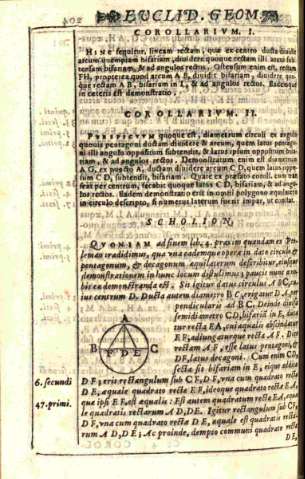 204 EUCLID. GEOM.
COROLLARIVM. I.
HINC sequitur, lineam rectam, quæ ex centro ducta diuidit
arcum quempiam bifariam, diuidere quoque rectam illi arcui sub-
tensam bifariam, & ad angulos rectos. Ostensum enim est, rectam
FH, propterea quod arcum AB, diuidit bifariam, diuidere quo-
que rectam AB, bifariam in I, & ad angulos rectos. Eademque
in ceteris est demonstratio.
COROLLARIVM. II.
PERSPICVVM quoque est, diametrum circuli ex angulo
quouis pentagoni ductam diuidere & arcum, quem latus pentago-
ni illi angulo oppositum subtendit, & latus ipsum oppositum bifa-
riam, & ad angulos rectos. Demonstratum enim est diametrum
AG, ex puncto A, ductam diuidere arcum CD, quem latus oppo-
situm CD, subtendit, bifariam. Quare ex præcedenti coroll. cum tran-
seat per centrum, secabit quoque latus CD, bifariam, & ad angu-
los rectos. Eadem demonstratio erit in omni polygono æquilatero
in circulo descripto, si numerus laterum fuerit impar, vt constat.
SCHOLION.
QVONIAM ad finem lib. 4. præcedentis quandam ex Pto-
lemæo tradidimus, qua vna eademque opera in dato circulo &
pentagonum, & decagonum æquilaterum describitur, eiusque
demonstrationem in hunc locum distulimus; paucis nunc am-
bo ea demonstranda est. Sit igitur datus circulus ABC, cu-
ius centrum D. Ducta autem diametro BC, erigatur DA, per-
pendicularis ad BC. Deinde diuisa
semidiametro CD, bifariam in E, duca-
tur recta EA, cui æqualis abscindatur
EF; adiungaturque recta AF. Dico
rectam AF, esse latus pentagoni, &
DF, latus decagoni. Cum enim CD,
secta sit bifariam in E, eique addita
A
B F D E C
6. secundi DF; erit rectangulum sub CF, DF, vna cum quadrato rectæ
DE, æquale quadrato rectæ EF, ideoque quadrato rectæ EA,
47. primi. quæ ipsi EF, est æqualis: Est autem quadratum rectæ EA, æqua-
le quadratis rectarum AD, DE. Igitur rectangulum sub CF,
DF, vna cum quadrato rectæ DE, æquale est quadratis recta-
rum AD, DE; Ac proinde, dempto communi quadrato rectæ
DE,